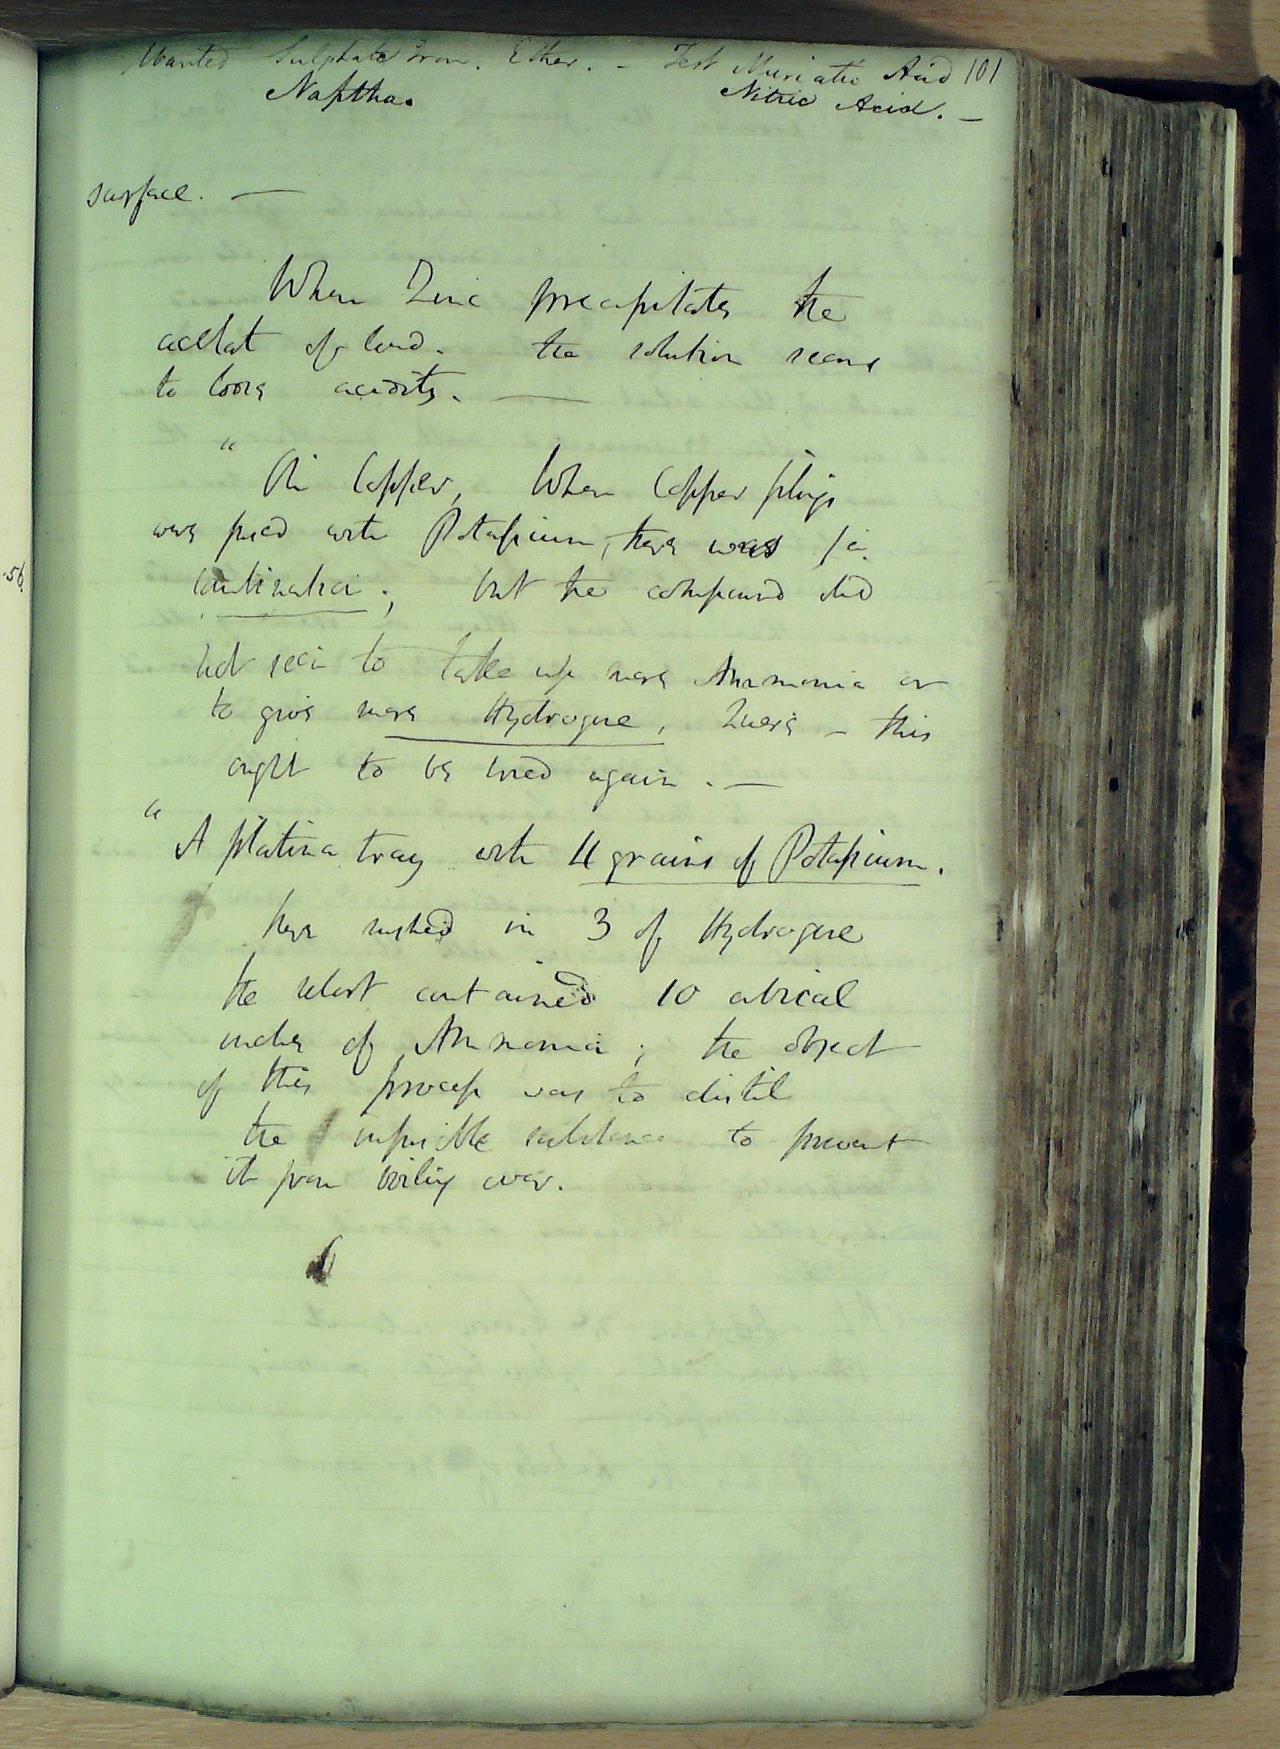 Wanted Sulphate Iron. Ether. - Test Muriatic Acid 101
Naptha. Nitric Acid. -
surface. —
When Zinc precipitates the
acetat of lead. the solution seems
to loose acidity. —
" On Copper, When Copper filings
were fused with Potassium, there was
but the compound did
not seem to take up more Ammonia or
to give more Hydrogene, Quere - this
ought to be tried again. —
" A platina tray with 4 grains of Potassium.
here rushed in 3 of Hydrogene
the retort contained 10 cubical
inches of Ammonia; the object
of this process was to distil
the infusible substance to prevent
it from boiling over.
56.